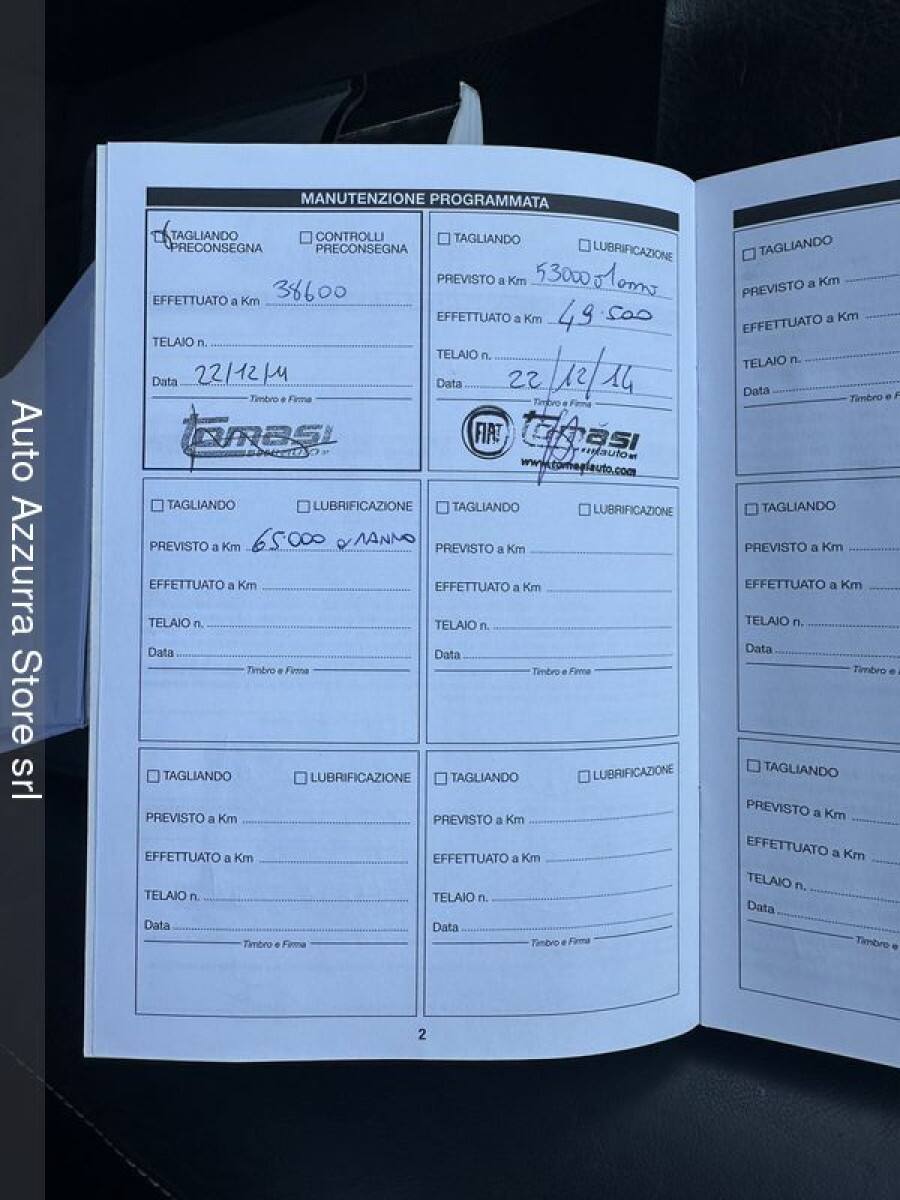 MANUTENZIONE PROGRAMMATA
TAGLIANDO PRECONSEGNA
CONTROLLI PRECONSEGNA
EFFETTUATO a Km 38600
TELAIO n.
Data 22/12/11
Timbro e Firma
Tomasi
TAGLIANDO
LUBRIFICAZIONE
PREVISTO a Km 53000 o 1 anno
EFFETTUATO a Km 49.500
TELAIO n.
Data 22/12/14
Timbro e Firma
FIAT
Tomasi
auto
www.tomasiauto.com
TAGLIANDO
LUBRIFICAZIONE
PREVISTO a Km 65000 o 1 ANNO
EFFETTUATO a Km
TELAIO n.
Data
Timbro e Firma
TAGLIANDO
LUBRIFICAZIONE
PREVISTO a Km
EFFETTUATO a Km
TELAIO n.
Data
Timbro e Firma
TAGLIANDO
LUBRIFICAZIONE
PREVISTO a Km
EFFETTUATO a Km
TELAIO n.
Data
Timbro e Firma
TAGLIANDO
LUBRIFICAZIONE
PREVISTO a Km
EFFETTUATO a Km
TELAIO n.
Data
Timbro e Firma
2
TAGLIANDO
PREVISTO a Km
EFFETTUATO a Km
TELAIO n.
Data
Timbro e F
TAGLIANDO
PREVISTO a Km
EFFETTUATO a Km
TELAIO n.
Data
Timbro e
TAGLIANDO
PREVISTO a Km
EFFETTUATO a Km
TELAIO n.
Data
Timbro e
Auto Azzurra Store srl